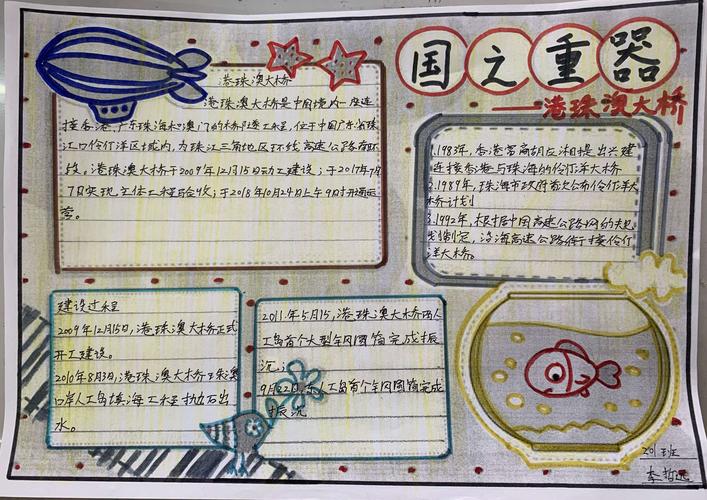 国之重器
——港珠澳大桥
港珠澳大桥
港珠澳大桥是中国境内一座连
接香港、广东珠海和澳门的桥隧工程,位于中国广东省珠
江口伶仃洋区域内,为珠江三角地区环线高速公路南环
段,港珠澳大桥于2009年12月15日动工建设;于2017年7月
7日实现主体工程验收;于2018年10月24日上午9时开通运
营。
1.1983年,香港商胡应湘提出兴建
连接香港与珠海的伶仃洋大桥
2.1989年,珠海市政府首次公布伶仃洋大
桥计划
3.1992年,根据中国高速公路网的规
划制定,沿海高速公路衔接伶仃
洋大桥。
建设过程
2009年12月15日,港珠澳大桥正式
开工建设。
2010年8月3日,港珠澳大桥主珠澳
口岸人工岛填海工程抛石出
水。
2011年5月15,港珠澳大桥西人
工岛首个大型钢圆筒完成振
沉;
9月22日,东人工岛首个钢圆筒完成
振沉
201班
李哲远